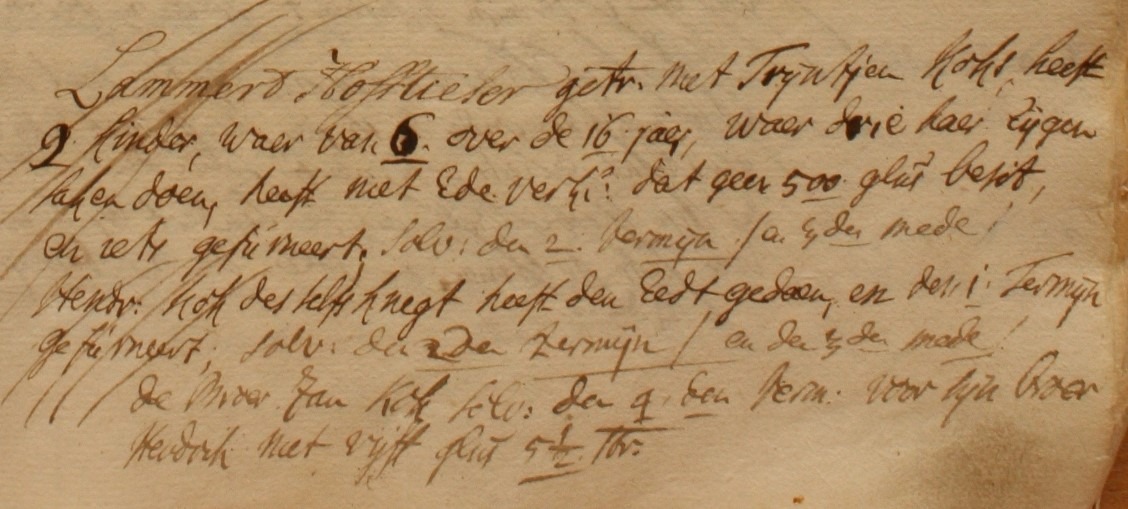 Lammerd Hofstieler getr. met Tryntjen Kok, heeft
9 kinder, waer van 6. over de 16 jaer, waer drie haer Eygen
saken doen, heeft met Ede verkl: dat geen 500 glns besit,
en iets gefurneert, Solv: den 2. termyn / en 3den mede /
Hendr: Kok des selfs knegt heeft den Eedt gedaen, en den 1. Termyn
gefurneert, solv: den 2den termyn / en den 3den mede /
de broer Jan Kok solv: den 4. den term. voor syn broer
Hendrik met vyff glns 5 1/2 str.